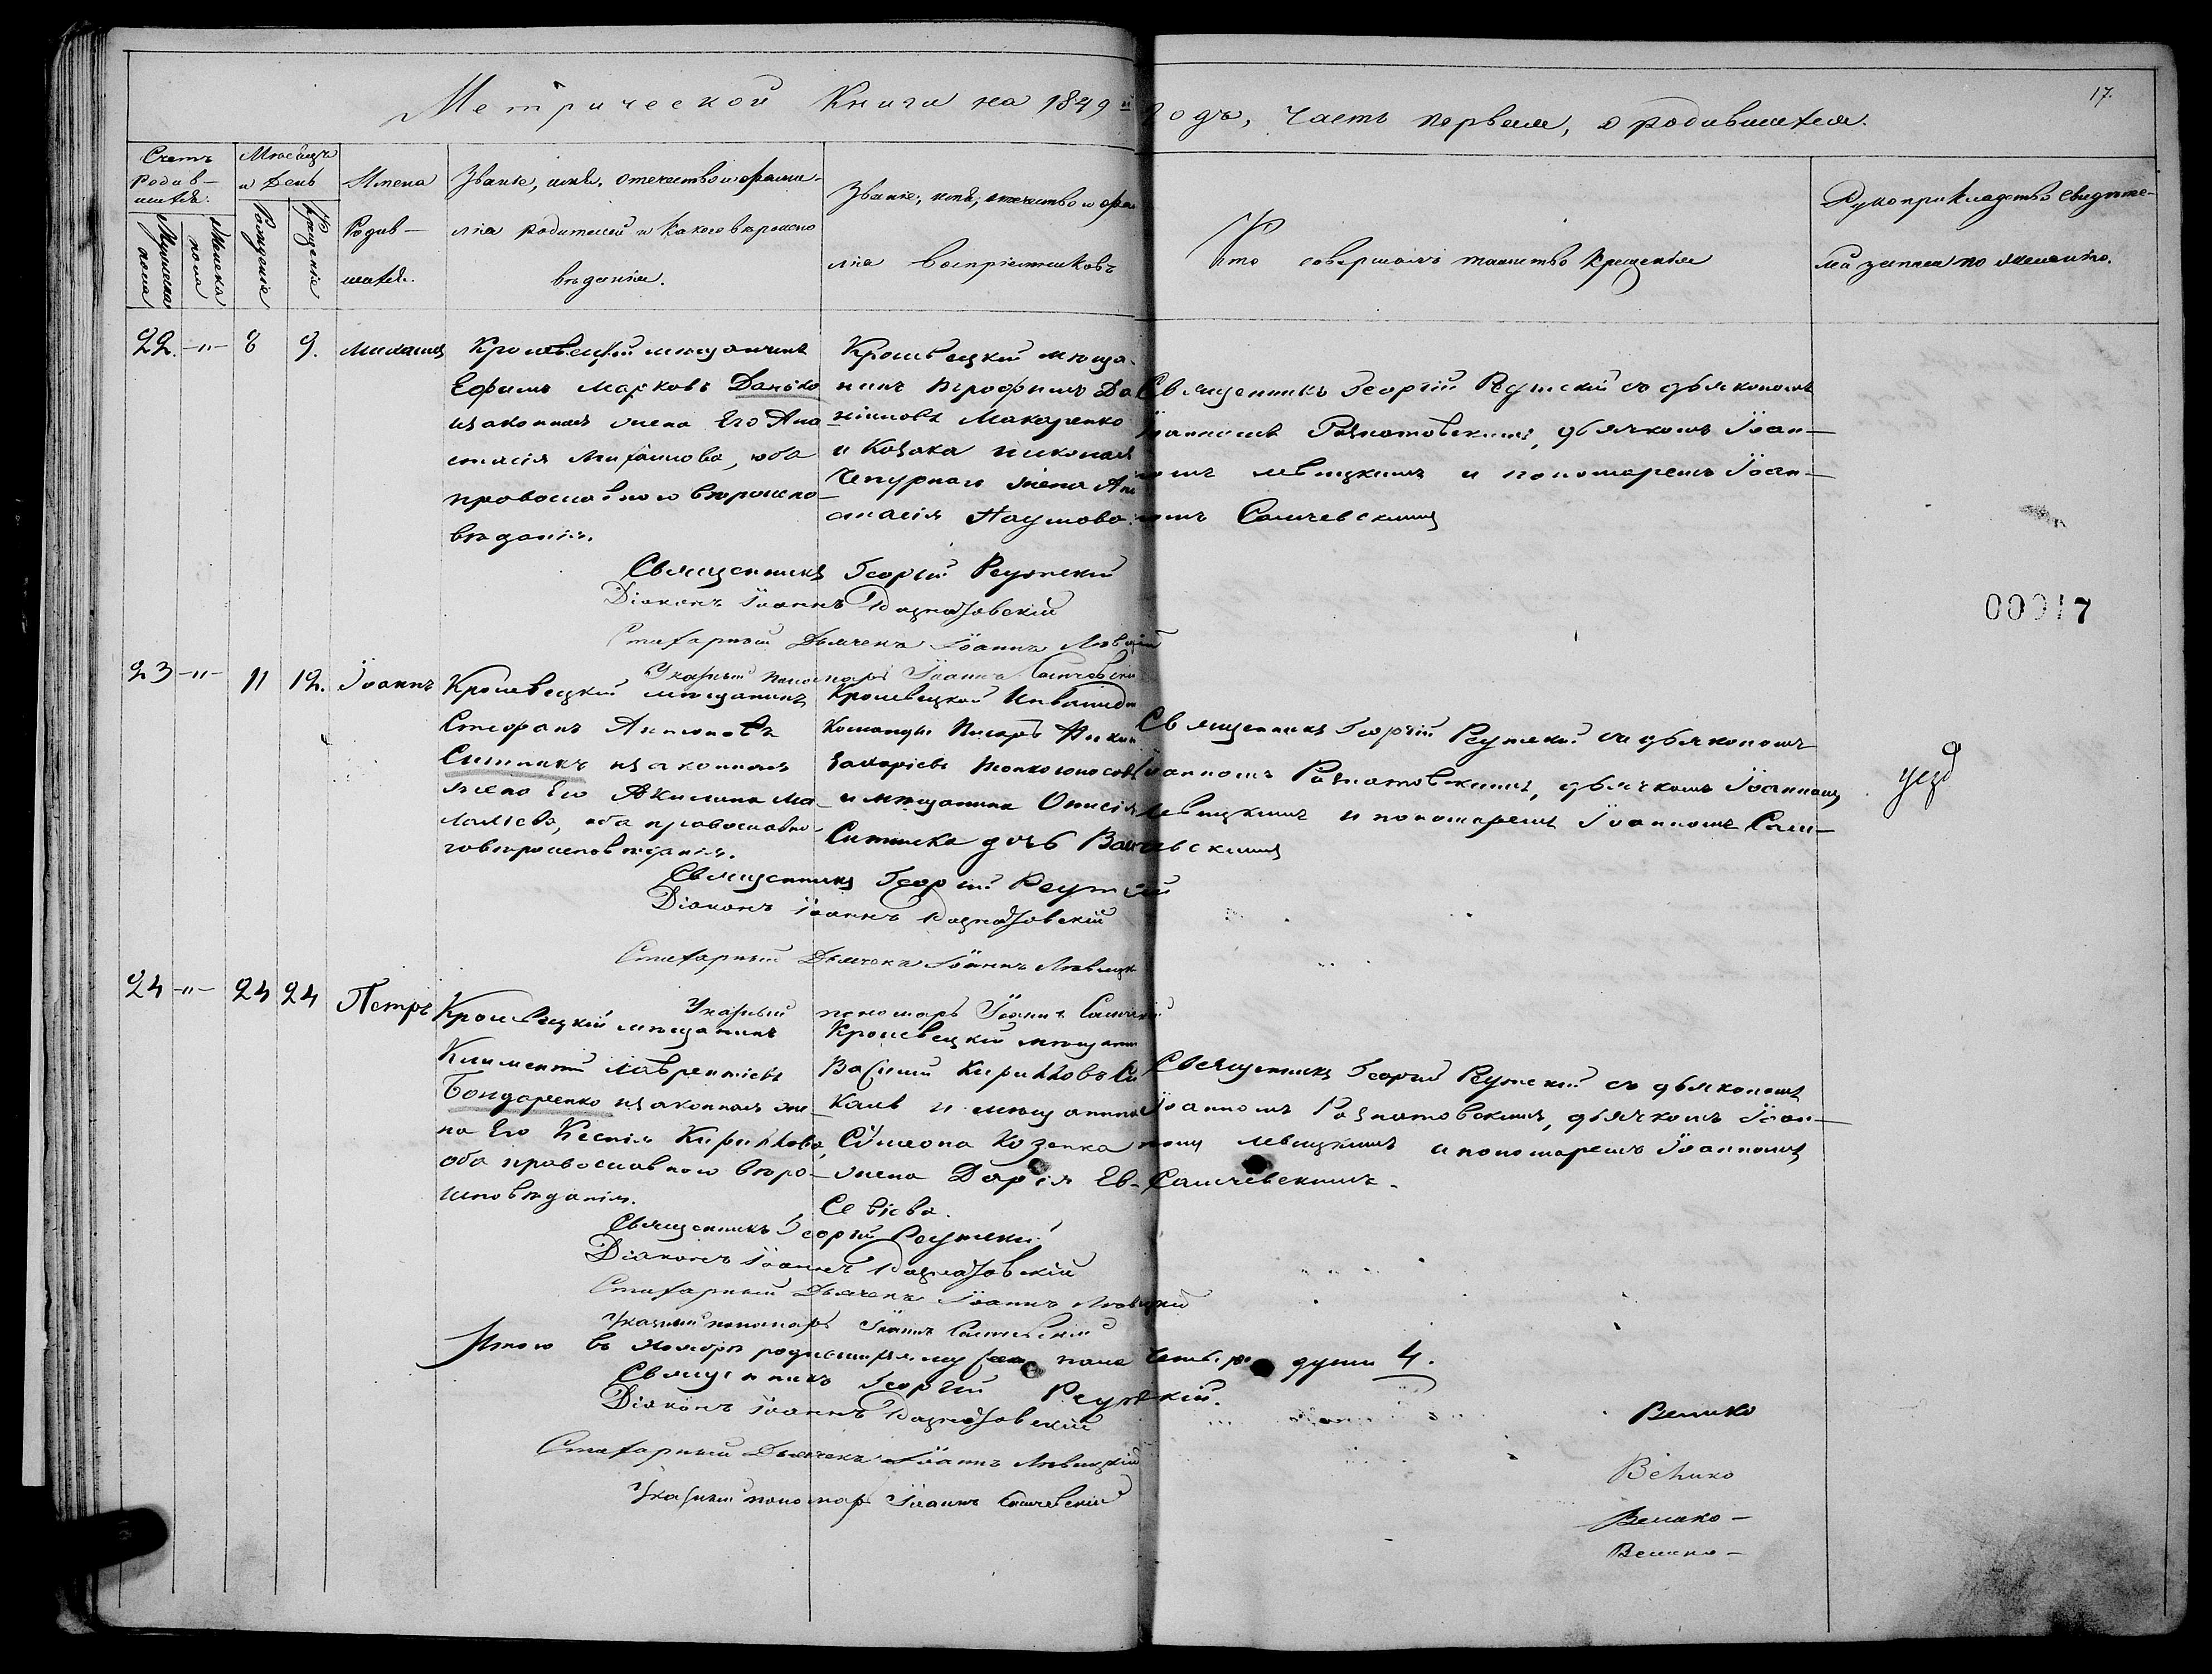 Метрической Книги на 1849й Годъ, часть первая, о родившихся.
17.
Счетъ родив-шихся.
Мужеска пола
Женска пола
Месяцъ и День
Рожденія
Крещенія
Имена
Родив-
шихся.
Званіе, имя, отечество и фами-
лія родителей и какого вероиспо
веданія.
Званіе, имя, отечество и фами
лія воспріемниковъ
Кто совершалъ таинство крещенія
Рукоприкладство свидете-
лей записи по желанію.
22. -"- 8 9. Михаилъ
Кролевецкій мещанинъ
Ефимъ Марковъ Данько
и законная жена Его Ана
стасія Михайлова, оба
православнаго вероиспо-
веданія.
Кролевецкій меща-
нинъ Трофимъ Да
ніиловъ Макаренко
и Козака Николая
Чепурнаго жена Ана
стасія Наумова.
Священникъ Георгій Реутскій съ діакономъ
Іоанномъ Розмотовскимъ, дьячкомъ Іоан-
номъ Левицкимъ и пономаремъ Іоан-
номъ Самчевскимъ
Священникъ Георгій Реутскій
Діаконъ Іоаннъ
Стихарный Дьячекъ Іоаннъ Левицкій
Указный пономарь Іоаннъ Самчевскій
00017
23 -"- 11 12. Іоаннъ
Кролевецкій мещанинъ
Стефанъ Антоновъ
Ситникъ и законная
жена Его Акилина Ма-
лова, оба православна-
говероисповеданія.
Кролевецкой Инвалидн
Команды Писарь
Захаріевъ
и мещанина Онисія
Ситника дочь
Священникъ Георгій Реутскій съ діакономъ
Іоанномъ Розмотовскимъ, дьячкомъ Іоанномъ
Левицкимъ и пономаремъ Іоанномъ Сам-
чевскимъ
Священникъ Георгій Реутскій
Діаконъ Іоаннъ
Стихарный Дьячекъ Іоаннъ Левицк
Указный пономарь Іоаннъ Самчевскій
24 -"- 24 24 Петръ
Кролевецкій мещанинъ
Климентій Лаврентіевъ
Бондаренко и законная же-
на Его Ксенія Кириллова,
оба православнаго веро-
исповеданія.
Кролевецкій мещанин
Василій Кирилловъ
и мещанина
Сѵмеона Козенка
жена Дарія Ев-
севіева.
Священникъ Георгій Реутскій съ діакономъ
Іоанномъ Розмотовскимъ, дьячкомъ Іоан-
номъ Левицкимъ и пономаремъ Іоанномъ
Самчевскимъ.
Священникъ Георгій Реутскій
Діаконъ Іоаннъ
Стихарный Дьячекъ Іоаннъ Левицкій
Указный пономарь Іоаннъ Самчевскій
Итого въ Ноябре родившихся муж пола души 4.
Священникъ Георгій Реутскій.
Діаконъ Іоаннъ
Стихарный Дьячекъ Іоаннъ Левицкій
Указный пономарь Іоаннъ Самчевскій